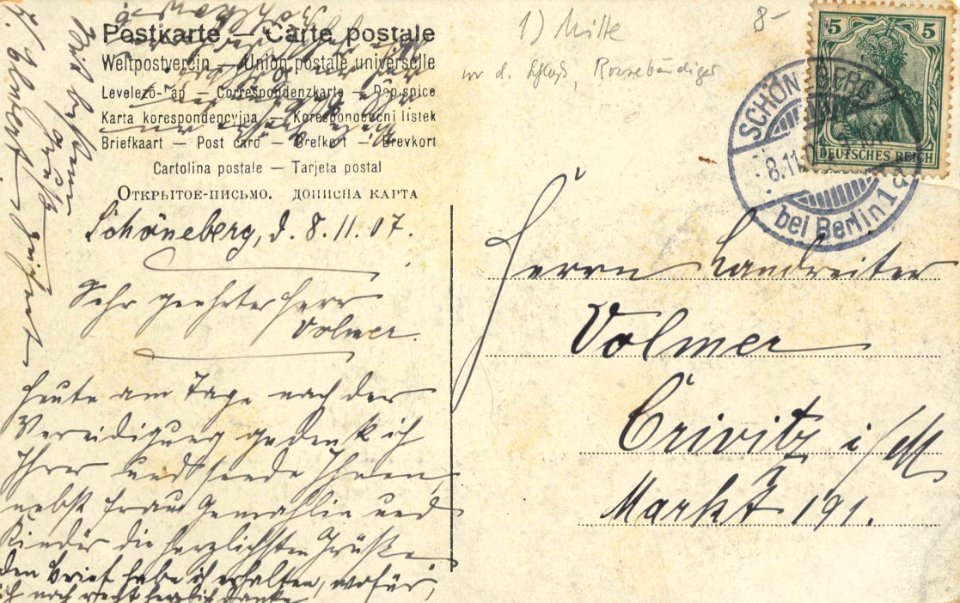 Postkarte – Carte postale
Weltpostverein – Union postale universelle
Levelező-Lap – Correspondenzkarte – Dopisnice
Karta korespondencyjna – Korespondenční lístek
Briefkaart – Post card – Brefkort – Brevkort
Cartolina postale – Tarjeta postal
Открытое-письмо. дописна карта
Schöneberg, d. 8.11.07.
Sehr geehrter Herr
Volmer.
Heute am Tage nach der
Vereidigung gedenke ich
Ihrer und sende Ihnen,
nebst Frau Gemahlin und
Kinder die herzlichsten Grüße
den Brief habe ich erhalten, wofür,
ich noch recht herzlich danke
Mit besten
Gruß
1) Mitte
8-
vor d. Schloß, Rossebändiger
5 5
DEUTSCHES REICH
SCHÖNEBERG
8.11.
bei Berlin 1
Herrn Landreiter
Volmer
Crivitz i/M
Markt 191.